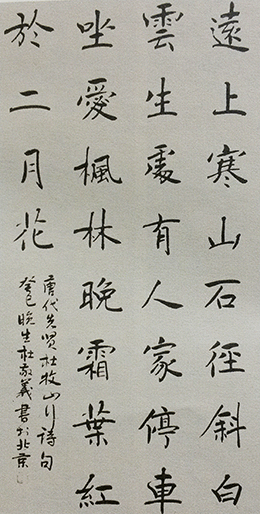 遠上寒山石徑斜白
雲生處有人家停車
坐愛楓林晚霜葉紅
於二月花
唐代先贤杜牧山行诗句
癸巳晚生杜敬義書於北京